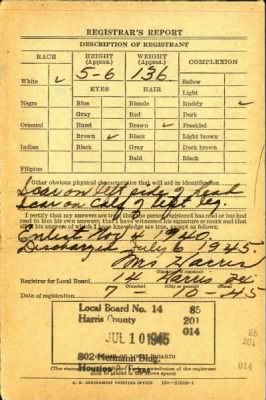 REGISTRAR'S REPORT
DESCRIPTION OF REGISTRANT
RACE HEIGHT (Approx.) WEIGHT (Approx.) COMPLEXION
White ✓ 5-6 136 Sallow
EYES HAIR Light
Negro Blue Blonde Ruddy ✓
Gray Red Dark
Oriental Hazel Brown ✓ Freckled
Brown ✓ Black Light Brown
Indian Black Gray Dark Brown
Bald Black
Filipino
Other obvious physical characteristics that will aid in identification
Scar on left side of head
Scar on calf of left leg.
I certify that my answers are true; that the person registered has read or has had
read to him his own answers; that I have witnessed his signature or mark and that
all of his answers of which I have knowledge are true, except as follows:
Enlist 1940
Discharged July 6 1945
Mrs Harris
Registrar for Local Board 14 Harris Tex
Date of registration 7 - 10 - 45
Local Board No. 14 85
Harris County 201
014
JUL 10 1945
802 Bldg. 85
Houston 2, Texas 201
014
U. S. GOVERNMENT PRINTING OFFICE